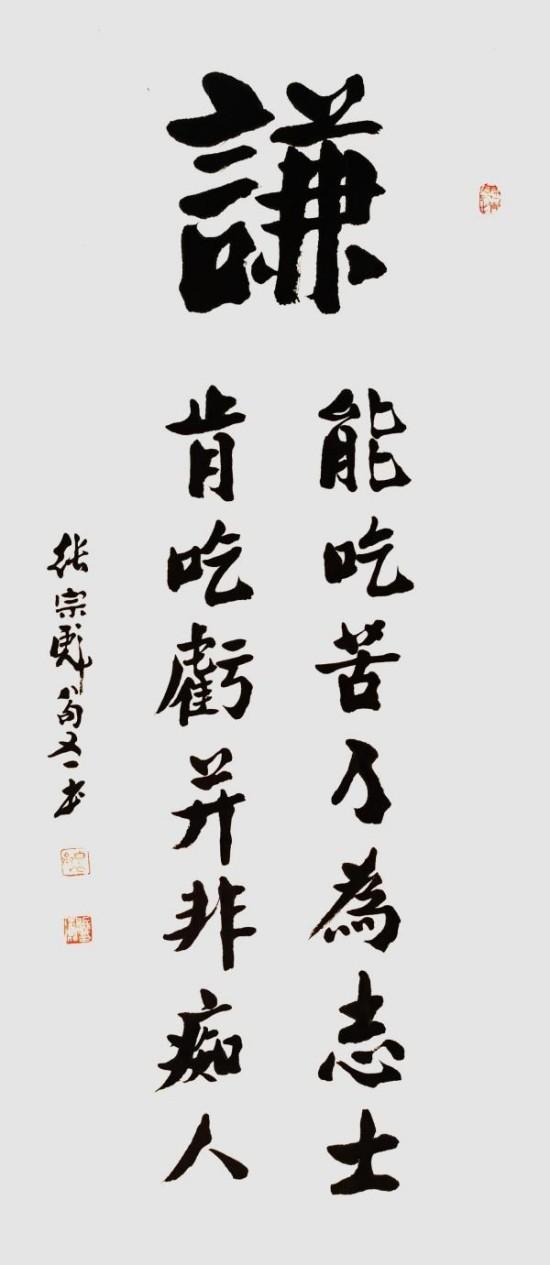 謙
能吃苦乃為志士
肯吃虧并非痴人
張宗彪
書